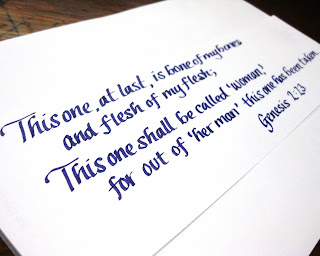 This one, at last, is bone of my bones
and flesh of my flesh;
This one shall be called 'woman,'
for out of 'her man' this one has been taken.
Genesis 2:23